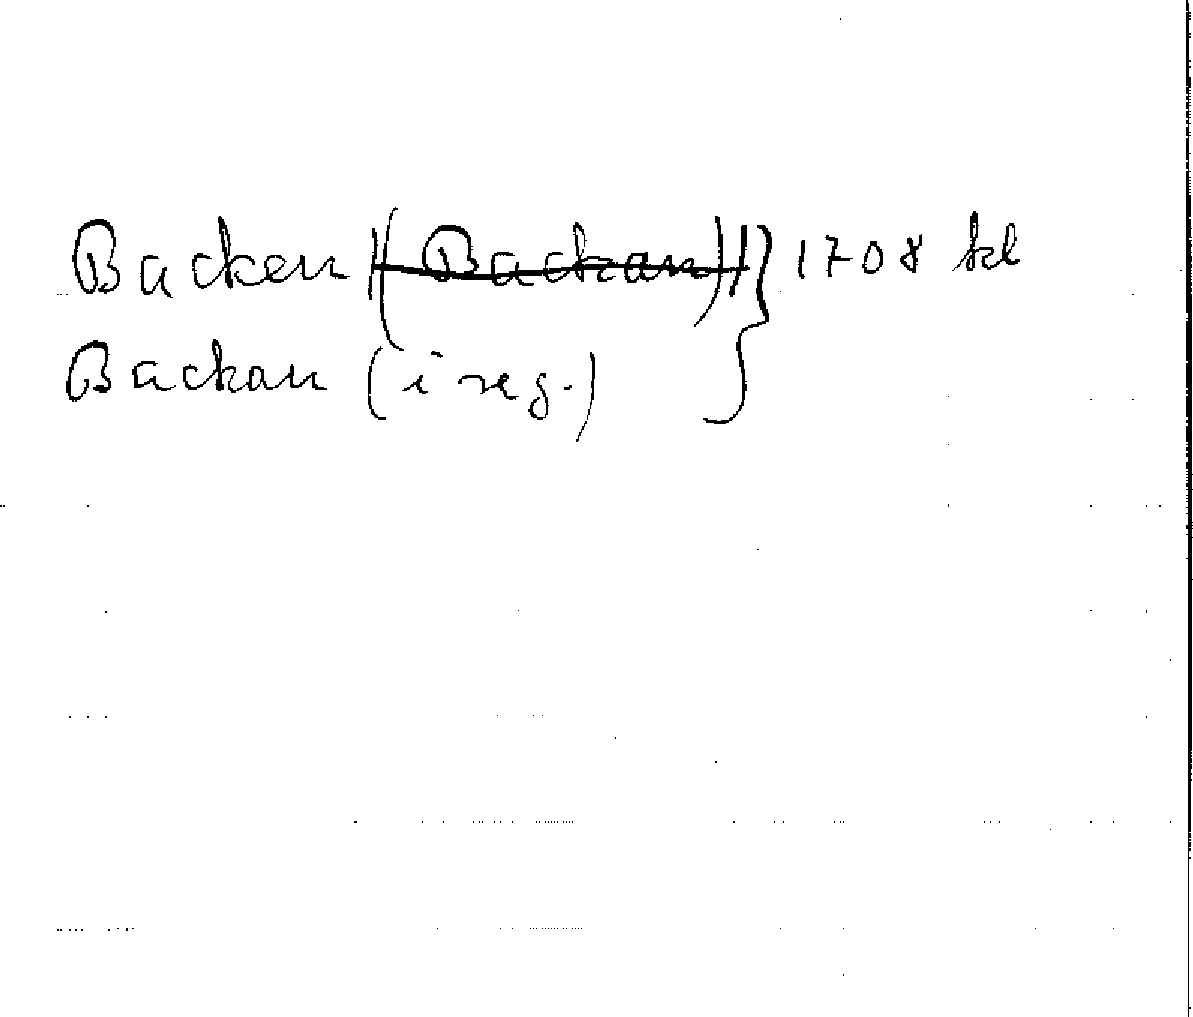 Backen (Backan) } 1708 kl
Backan (i reg.)